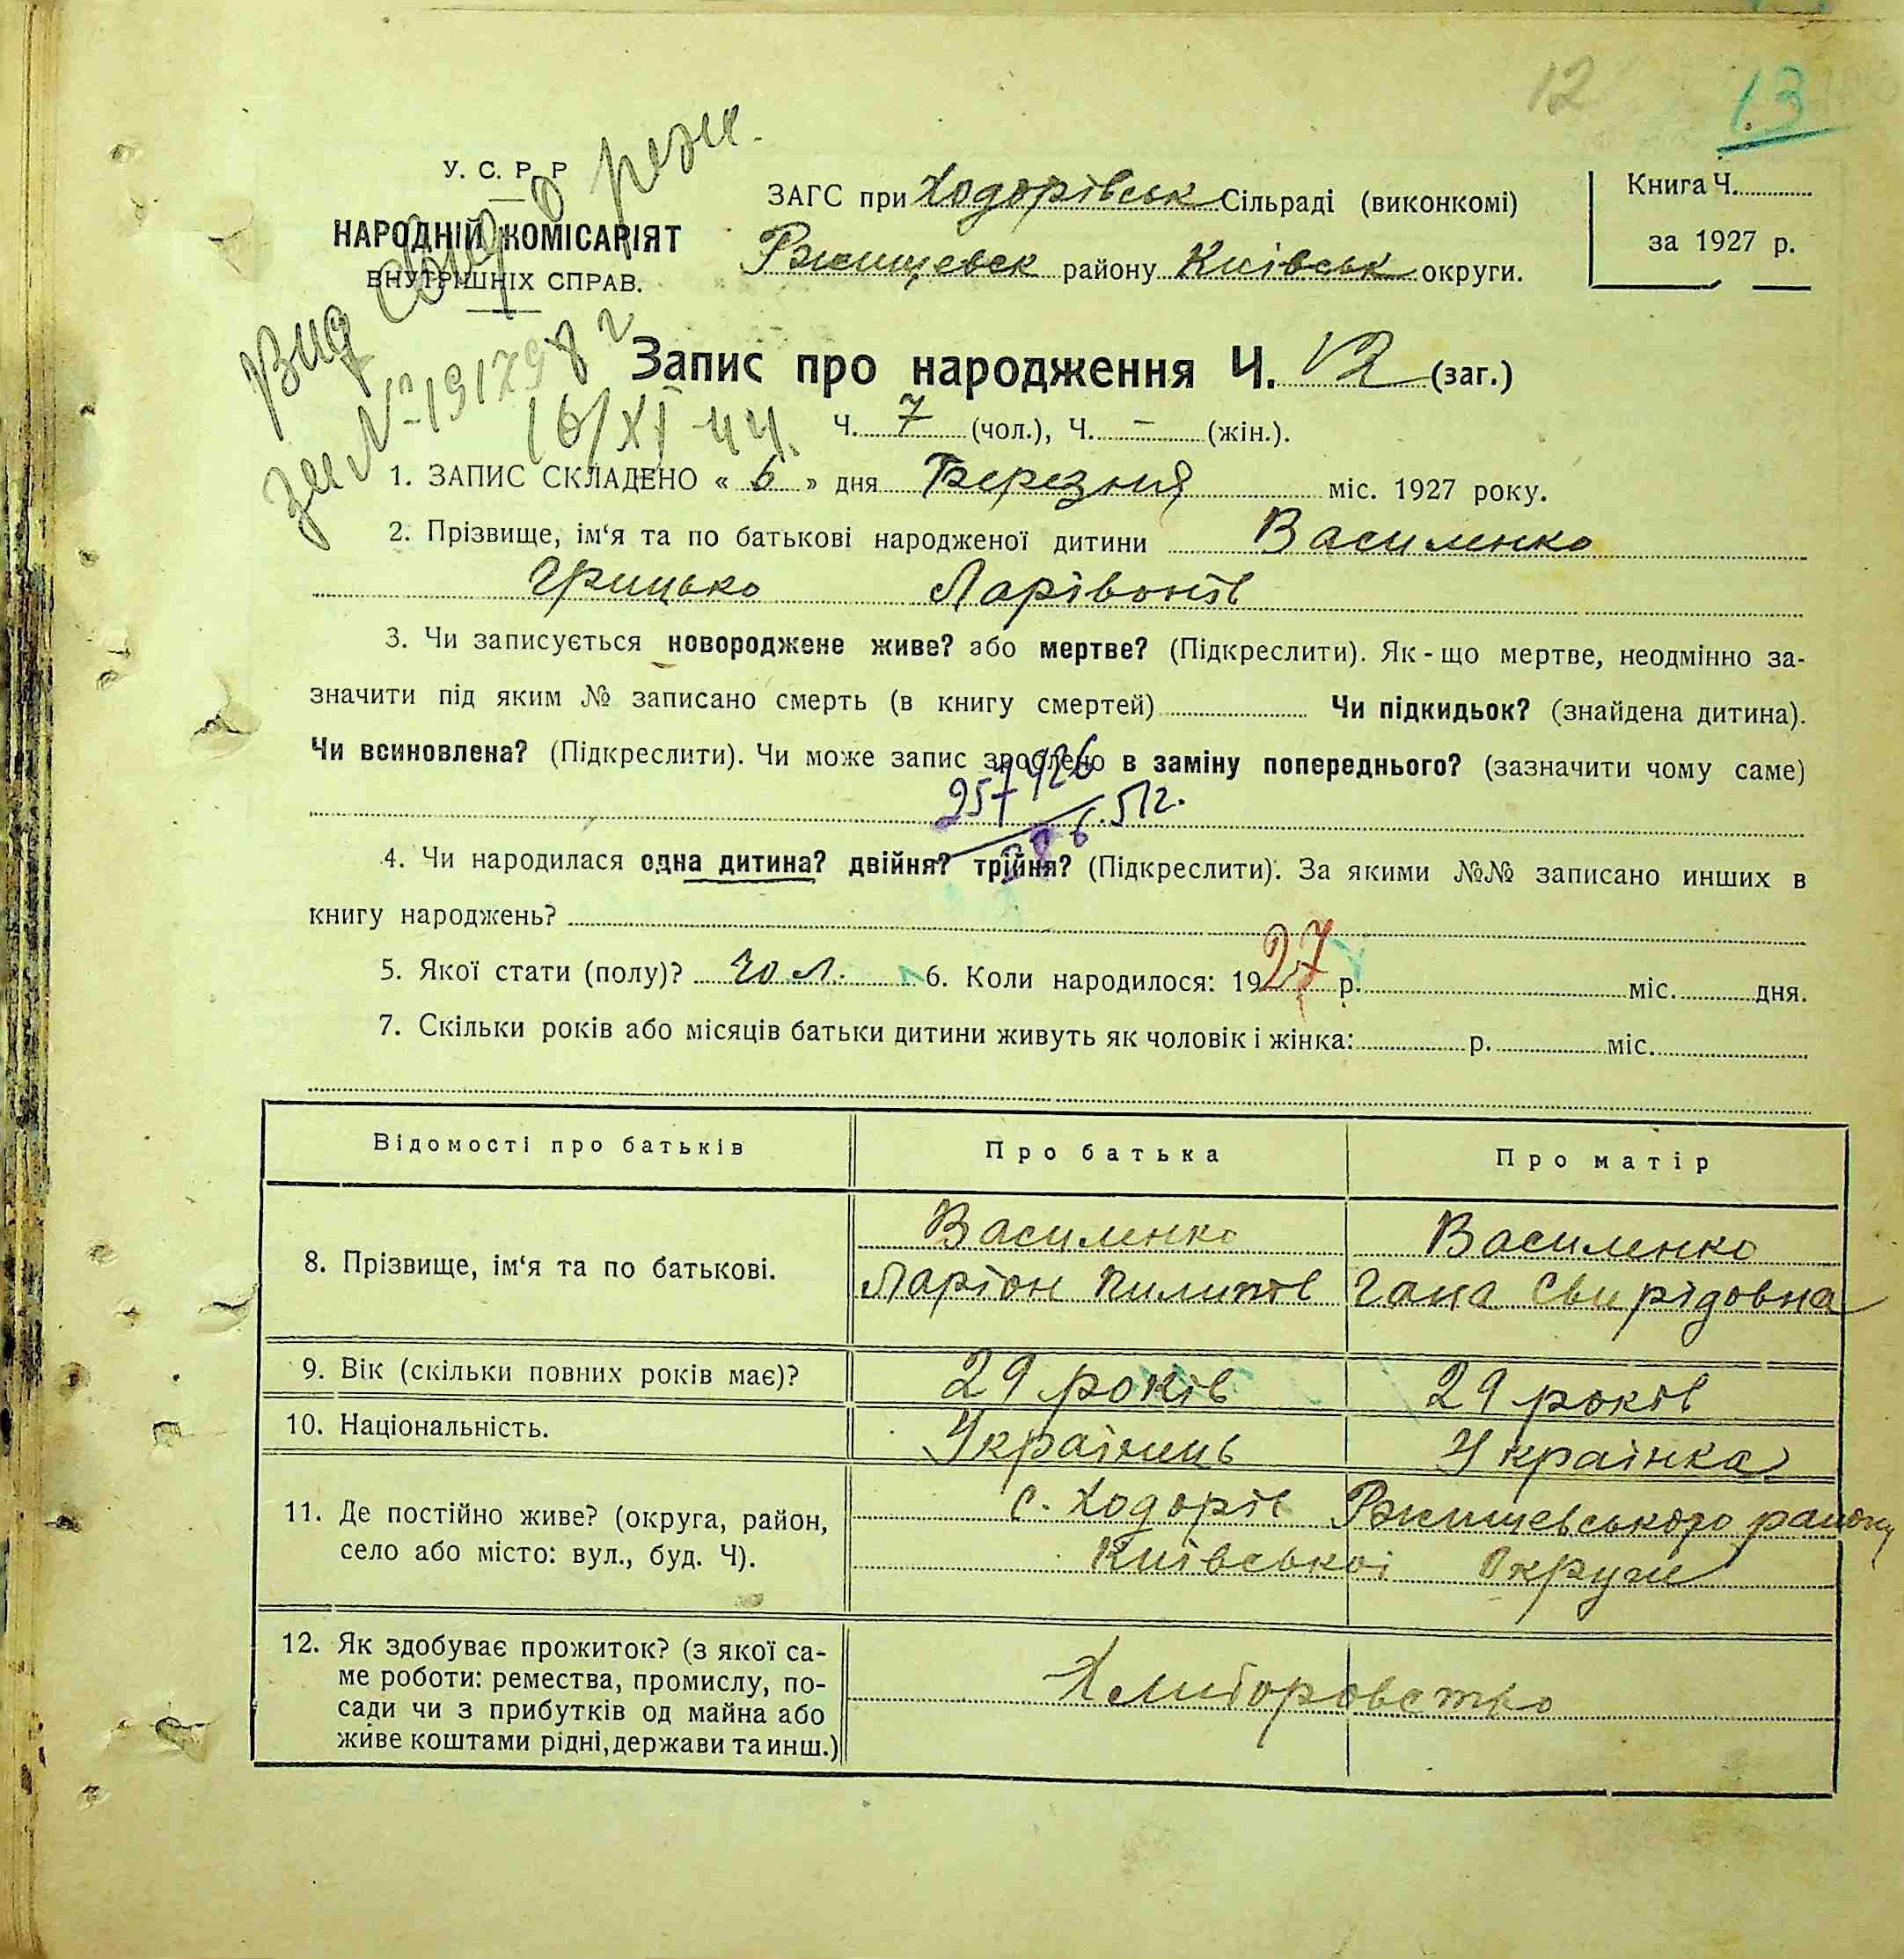 12 13
У. С. Р. Р
НАРОДНІЙ КОМІСАРІЯТ
ВНУТРІШНІХ СПРАВ.
ЗАГС при Ходорівськ Сільраді (виконкомі)
Ржищевск району Київськ округи.
Книга Ч.
за 1927 р.
Вид
за № 191798
16/XI 44.
Запис про народження Ч. 12 (заг.)
Ч. 7 (чол.), Ч. - (жін.).
1. ЗАПИС СКЛАДЕНО « 6 » дня Березня міс. 1927 року.
2. Прізвище, ім‘я та по батькові народженої дитини Василенко
Грицько Ларівонів
3. Чи записується новороджене живе? або мертве? (Підкреслити). Як-що мертве, неодмінно за-
значити під яким № записано смерть (в книгу смертей) Чи підкидьок? (знайдена дитина).
Чи всиновлена? (Підкреслити). Чи може запис зроблено в заміну попереднього? (зазначити чому саме)
4. Чи народилася одна дитина? двійня? трійня? (Підкреслити). За якими №№ записано инших в
книгу народжень?
5. Якої стати (полу)? чол. 6. Коли народилося: 1927 р. міс. дня.
7. Скільки років або місяців батьки дитини живуть як чоловік і жінка: р. міс.
Відомості про батьків Про батька Про матір
8. Прізвище, ім‘я та по батькові.
Василенко Василенко
Ларіон Пилипів Гана Свирідовна
9. Вік (скільки повних років має)? 29 років 29 років
10. Національність. Українець Українка
11. Де постійно живе? (округа, район,
село або місто: вул., буд. Ч).
с. Ходорів Ржищевського району
Київської Округи
12. Як здобуває прожиток? (з якої са-
ме роботи: ремества, промислу, по-
сади чи з прибутків од майна або
живе коштами рідні, держави та инш.)
Хлиборовство